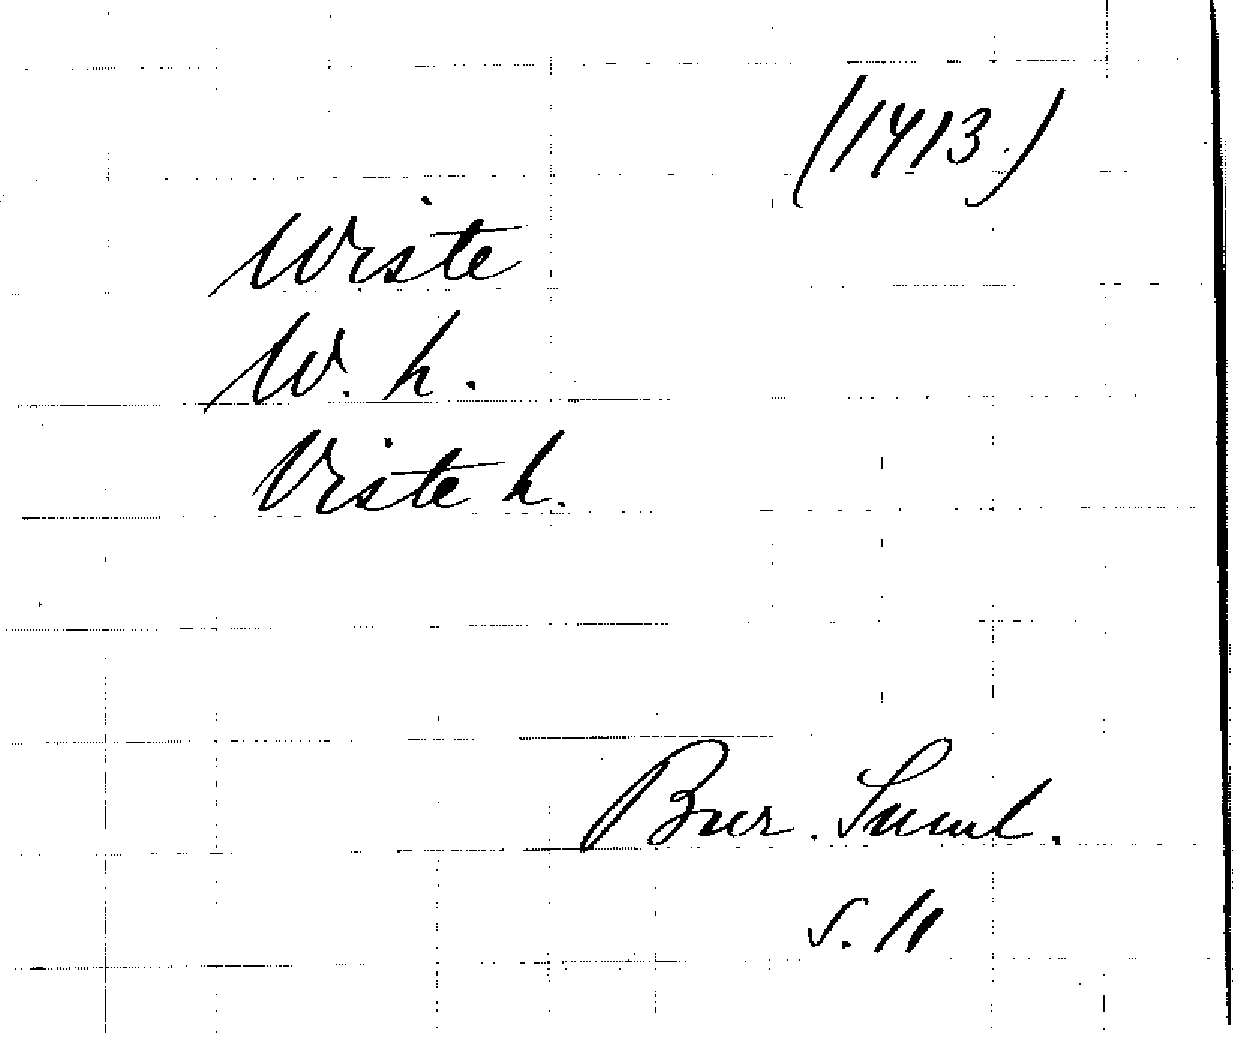 (1413.)
Wiste
W. h.
Viste h.
Brer. Suml.
s. 11